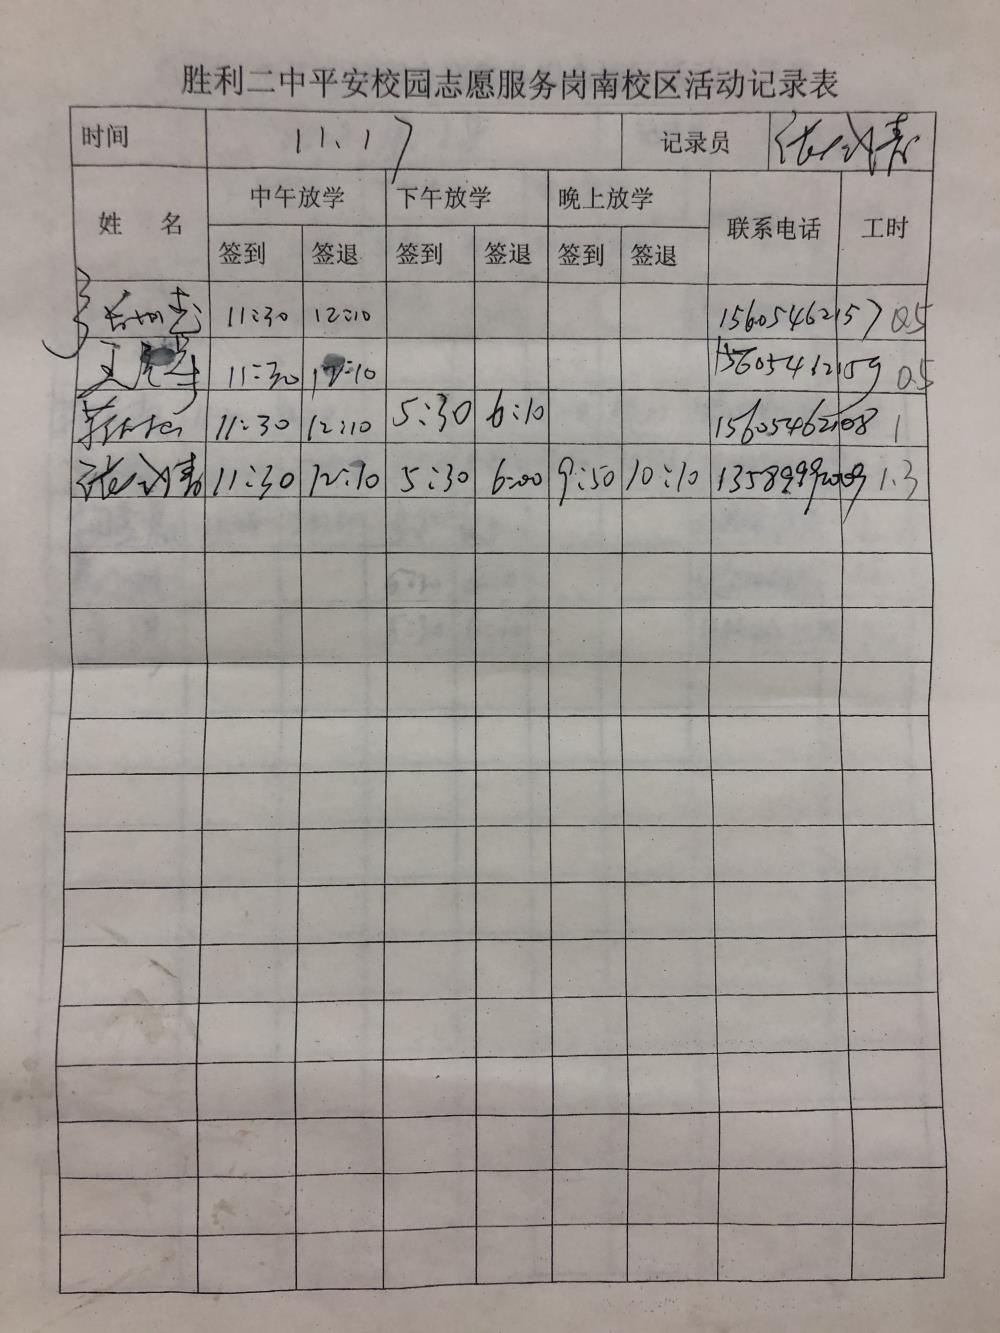 胜利二中平安校园志愿服务岗南校区活动记录表
时间 11.17 记录员
姓 名 中午放学 下午放学 晚上放学 联系电话 工时
签到 签退 签到 签退 签到 签退
11:30 12:10 15605462157 0.5
11:30 12:10 0.5
11:30 12:10 5:30 6:10 1
11:30 12:10 5:30 6:00 9:50 10:10 1.3